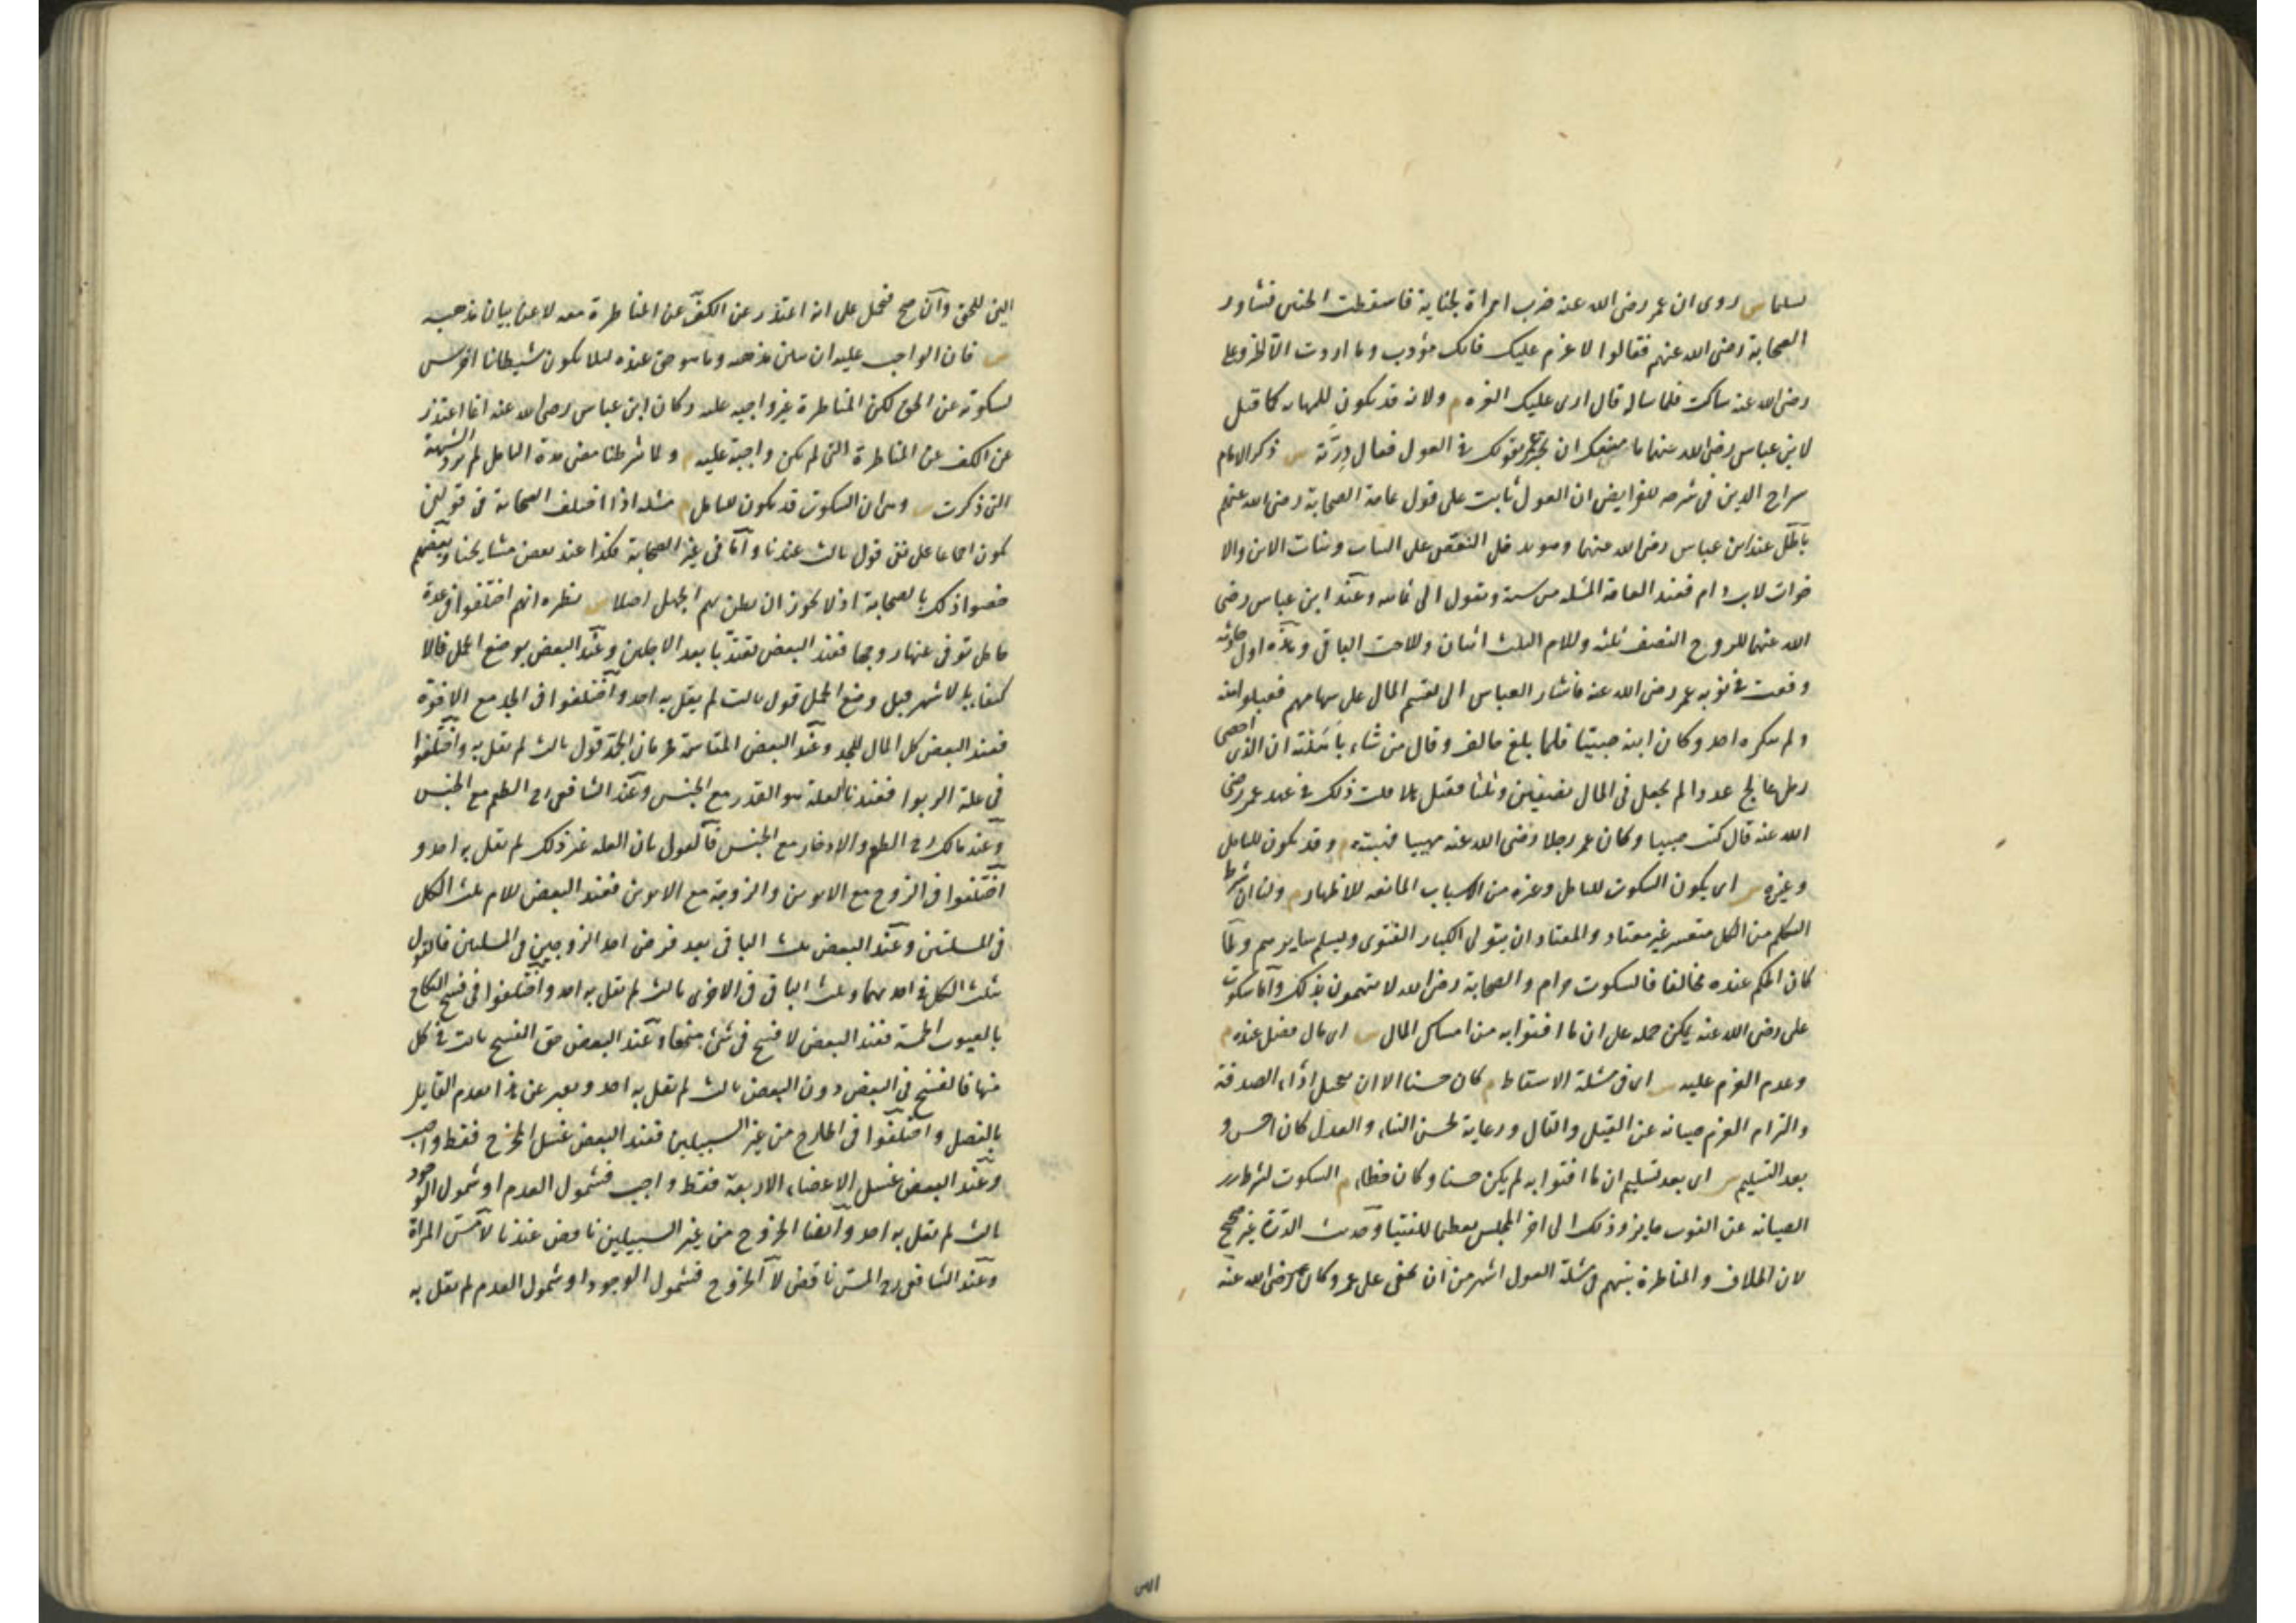 تسليما س روى ان عمر رضى الله عنه ضرب امراة لجناية فاسقطت الجنين فشاور
الصحابة رضى الله عنهم فقالوا لا غرم عليك فانك مؤدب وما اردت الا الخير وعلى
رضى الله عنه ساكت فلما ساله قال ارى عليك الغرة م ولانه قد يكون للمهابة كما قيل
لابن عباس رضى الله عنهما ما منعك ان تخبر عمر بقولك فى العول فقال درته س ذكر الامام
سراج الدين فى شرحه للفرايض ان العول ثابت على قول عامة الصحابة رضى الله عنهم
باطل عند ابن عباس رضى الله عنهما وهو يدخل النقص على البنات وبنات الابن والا
خوات لاب و ام فعند العامة المسئلة من ستة وتعول الى ثمانية وعند ابن عباس رضى
الله عنهما للزوج النصف ثلثة وللام الثلث اثنان وللاخت الباقى وهذه اول حادثة
وقعت فى نوبة عمر رضى الله عنه فاشار العباس الى تقسيم المال على سهامهم فقبلوا منه
ولم ينكره احد وكان ابنه صبيا فلما بلغ خالف وقال من شاء باهلته ان الذى احصى
رمل عالج عددا لم يجعل فى المال نصفين وثلثا فقيل هلا قلت ذلك فى عهد عمر رضى
الله عنه قال كنت صبيا وكان عمر رجلا رضى الله عنه مهيبا فهبته م وقد يكون للتامل
وغيره س اى يكون السكوت للتامل وغيره من الاسباب المانعة للاظهار م ولنا ان شرط
التكلم من الكل متعسر غير معتاد والمعتاد ان يتولى الكبار الفتوى ويسلم سايرهم ولما
كان الحكم عنده مخالفا فالسكوت حرام والصحابة رضى الله لا يتهمون بذلك واما سكوت
على رضى الله عنه يمكن حمله على ان ما افتوا به من امساك المال س اى مال فضل عنده م
وعدم الغرم عليه س اى فى مسئلة الاسقاط م كان حسنا الا ان تعجيل اداء الصدقة
والتزام الغرم صيانة عن القيل والقال ورعاية لحسن الثناء والعدل كان احسن و
بعد التسليم س اى بعد تسليم ان ما افتوا به لم يكن حسنا وكان خطا م السكوت لشرط
الصيانة عن الفوت جايز وذلك الى اخر المجلس تعظيما للفتيا وحديث الدرة غير صحيح
لان الخلاف والمناظرة بينهم فى مسئلة العول اشهر من ان يخفى على عمر وكان عمر رضى الله عنه
الين للحق وان صح فيحمل على انه اعتذر عن الكف عن المناظرة معه لا عن بيان مذهبه
س فان الواجب عليه ان يبين مذهبه وما هو حق عنده ليلا يكون شيطانا اخرس
لسكوته عن الحق لكن المناظرة غير واجبة عليه وكان ابن عباس رضى الله عنه انما اعتذر
عن الكف عن المناظرة التى لم تكن واجبة عليه م ولما شرطنا مضى مدة التامل لم ترد الشبهة
التى ذكرت س وهى ان السكوت قد يكون للتامل م مسئلة اذا اختلف الصحابة فى قولين
يكون اجماعا على نفى قول ثالث عندنا واما فى غير الصحابة فكذا عند بعض مشايخنا وبعضهم
خصوا ذلك بالصحابة اذ لا يجوز ان يظن بهم الجهل اصلا س نظيره انهم اختلفوا فى عدة
حامل توفى عنها زوجها فعند البعض تعتد بابعد الاجلين وعند البعض بوضع الحمل فالا
كتفاء بالاشهر قبل وضع الحمل قول ثالث لم يقل به احد واختلفوا فى الجد مع الاخوة
فعند البعض كل المال للجد وعند البعض المقاسمة فحرمان الجد قول ثالث لم يقل به واختلفوا
فى علة الربوا فعندنا العلة هو القدر مع الجنس وعند الشافعى رح الطعم مع الجنس
وعند مالك رح الطعم والادخار مع الجنس فالقول بان العلة غير ذلك لم يقل به احد و
اختلفوا فى الزوج مع الابوين والزوجة مع الابوين فعند البعض للام ثلث الكل
فى المسئلتين وعند البعض ثلث الباقى بعد فرض احد الزوجين فى المسئلتين فالقول
بثلث الكل فى احديهما وثلث الباقى فى الاخرى ثالث لم يقل به احد واختلفوا فى فسخ النكاح
بالعيوب الخمسة فعند البعض لا فسخ فى شئ منها وعند البعض حق الفسخ ثابت فى كل
منها فالفسخ فى البعض دون البعض ثالث لم يقل به احد ويعبر عن هذا بعدم القايل
بالفصل واختلفوا فى الخارج من غير السبيلين فعند البعض غسل المخرج فقط واجب
وعند البعض غسل الاعضاء الاربعة فقط واجب فشمول العدم او شمول الوجود
ثالث لم يقل به احد وايضا الخروج من غير السبيلين ناقض عندنا لا مس المراة
وعند الشافعى رح المس ناقض لا الخروج فشمول الوجود او شمول العدم لم يقل به